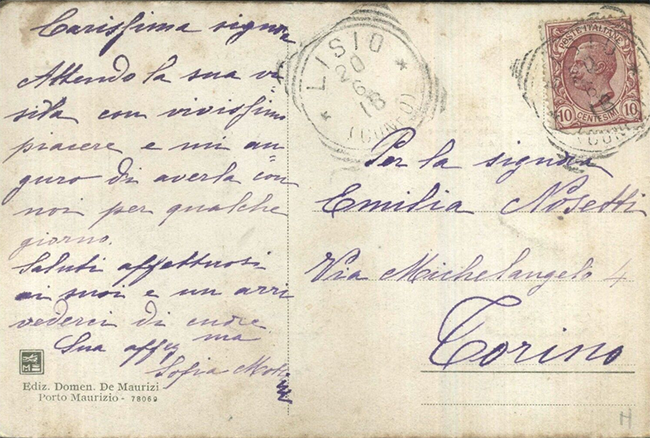 Carissima signora
Attendo la sua vi
sita con vivissimo
piacere e mi au
guro di averla con
noi per qualche
giorno.
Saluti affettuosi
ai suoi e un arri
vederci di cuore
Sua affez ma
Sofia
Ediz. Domen. De Maurizi
Porto Maurizio - 78069
LISIO
20
6
18
(CUNEO)
POSTE ITALIANE
10 CENTESIMI 10
Per la signora
Emilia Nosetti
Via Michelangelo
Torino
H